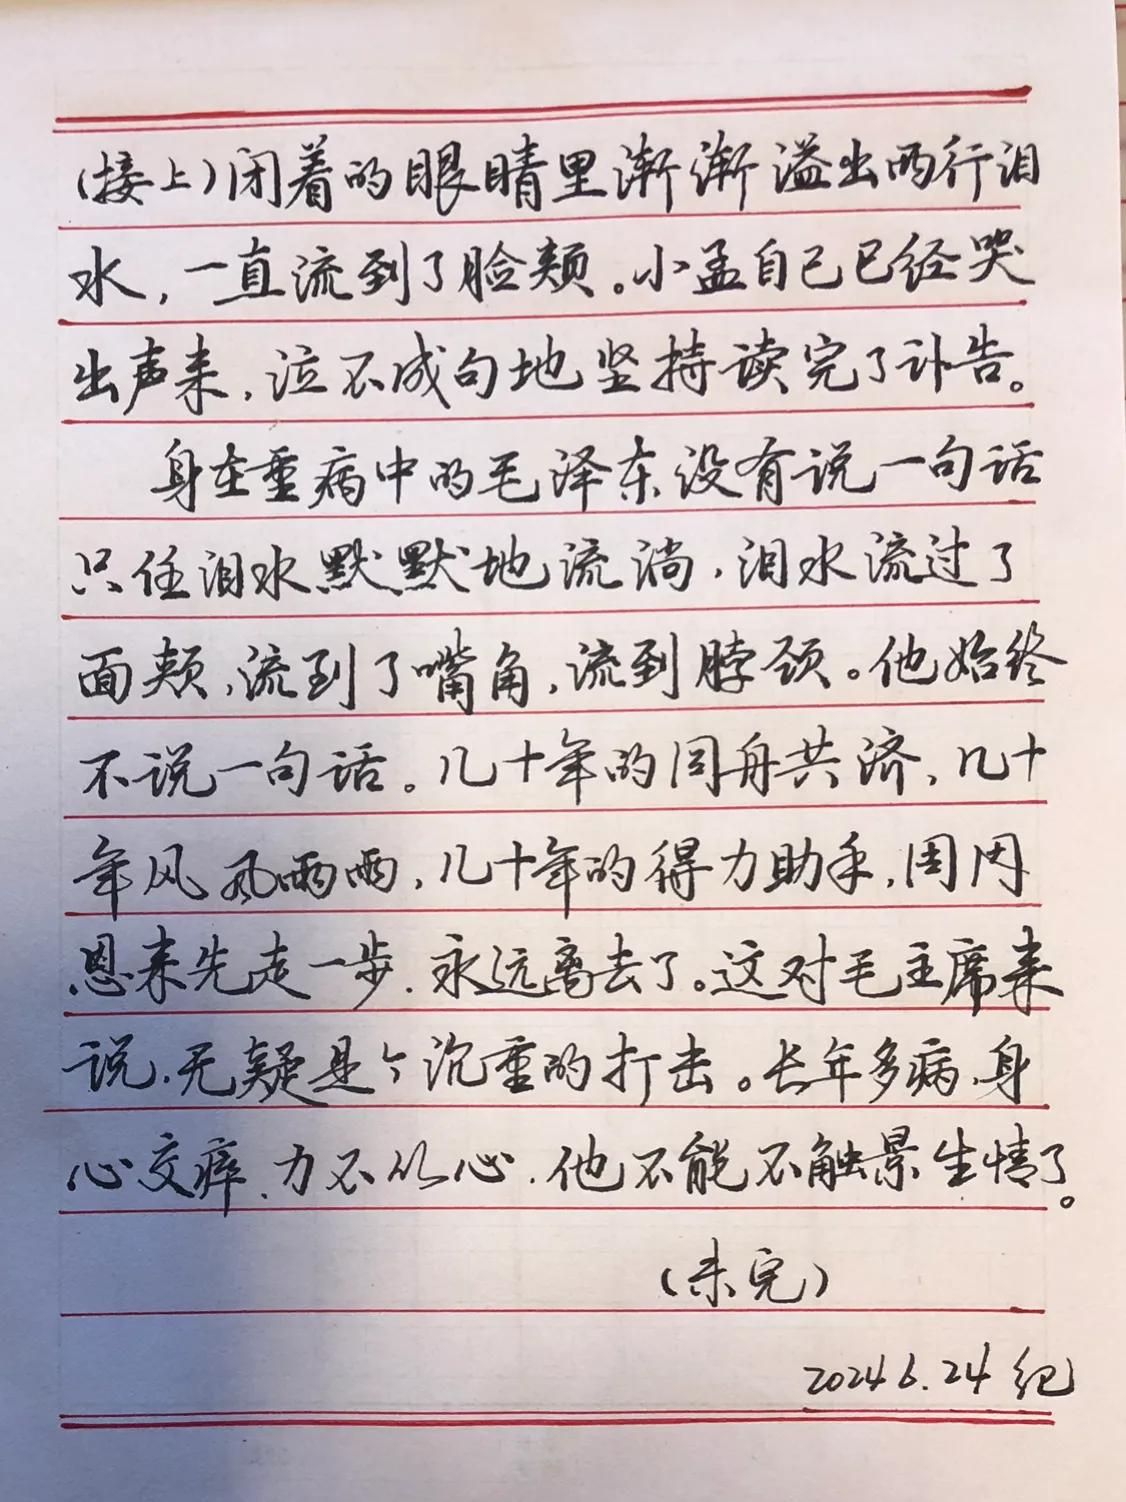 (接上)闭着的眼睛里渐渐溢出两行泪
水，一直流到了脸颊。小孟自己已经哭
出声来，泣不成句地坚持读完了讣告。
身在重病中的毛泽东没有说一句话
只任泪水默默地流淌，泪水流过了
面颊，流到了嘴角，流到脖颈。他始终
不说一句话。几十年的同舟共济，几十
年风风雨雨，几十年的得力助手，周周
恩来先走一步，永远离去了。这对毛主席来
说，无疑是个沉重的打击。长年多病，身
心交瘁，力不从心，他不能不触景生情了。
(未完)
2024 6.24 纪